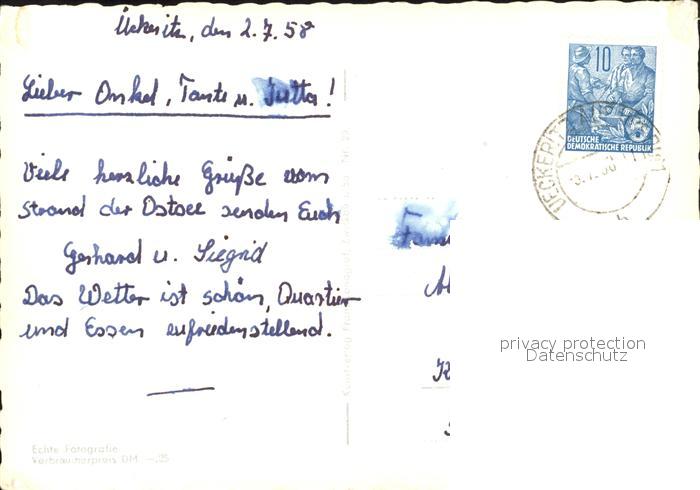 Ückeritz, den 2.7.58
Lieber Onkel, Tante u. Jutta!
Viele herzliche Grüße vom
Strand der Ostsee senden Euch
Gerhard u. Siegrid
Das Wetter ist schön, Quartier
und Essen zufriedenstellend.
Echte Fotografie
Verbraucherpreis DM -,25
10
DEUTSCHE
DEMOKRATISCHE REPUBLIK
UECKERITZ
Fam
privacy protection
Datenschutz